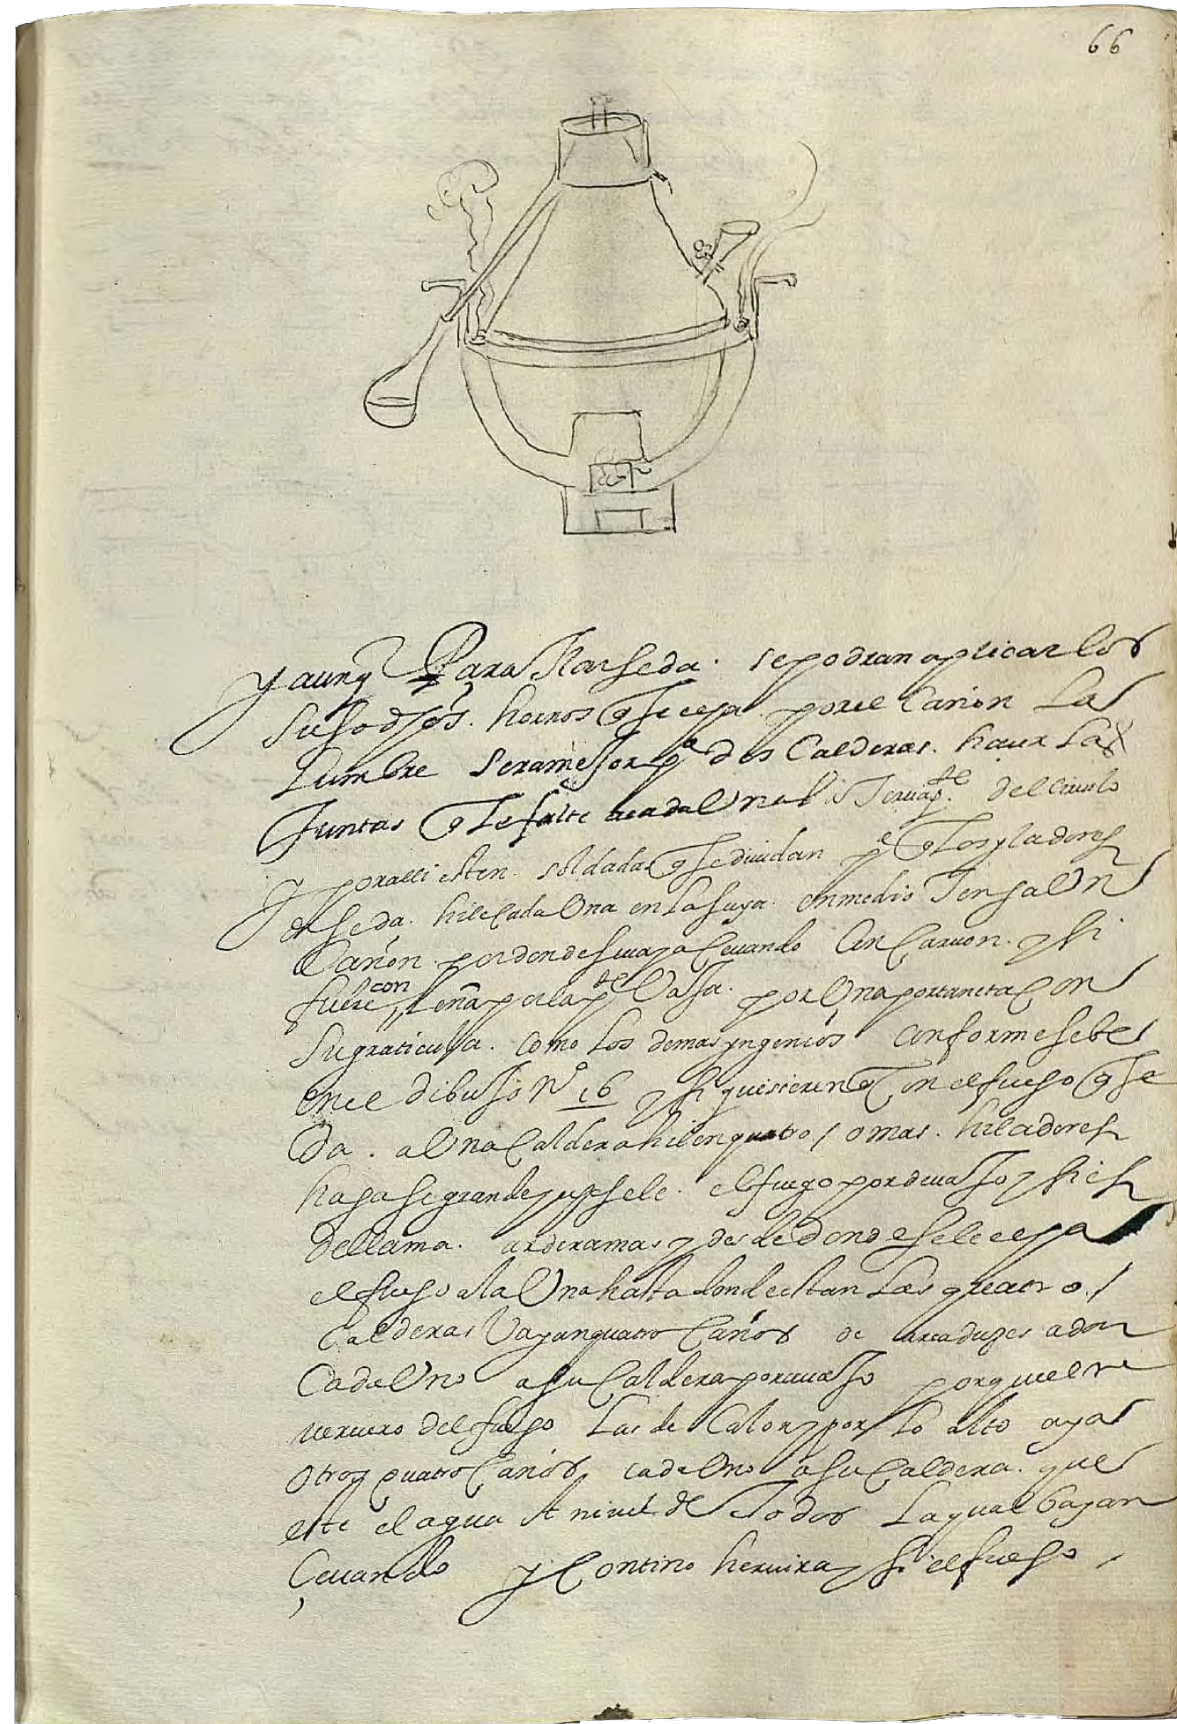 66
y aunq Para Ilar seda. se podran aplicar los
susodhos. hornos q se ceva por el cañon La
Lumbre sera mejor pª dos Calderas. hacer las
Juntas q le falte a cada Una la pte del circulo
y por alli esten soldadas q se diuidan pª q los yladores
de seda. hile Cada Una en la suya. en medio Tenga Un
Cañon por donde se vaya Ceuando Con Carvon. y si
fuere con Leña por la pte Vaja. por Una portañeta con
su graticula. como los demas yngenios conforme se be
en el dibujo Nº 16 y si quisieren q con el fuego q se
da. a Una Caldera hilen quatro / o mas. hiladores
hagase grande y el fuego por deuajo y si es
de llama. ardera mas y desde donde se le ceva
el fuego a la Una hasta donde estan Las quatro /
Calderas Vayan quatro Caños de arcaduzes
Cada Uno a su Caldera por deuajo porque el re
veruero del fuego Las de Calor y por lo alto aya
otros quatro Caños cada Uno a su Caldera. que
este el agua A nivel de Todos La qual bayan
Ceuando y Contino heruira y si el fuego